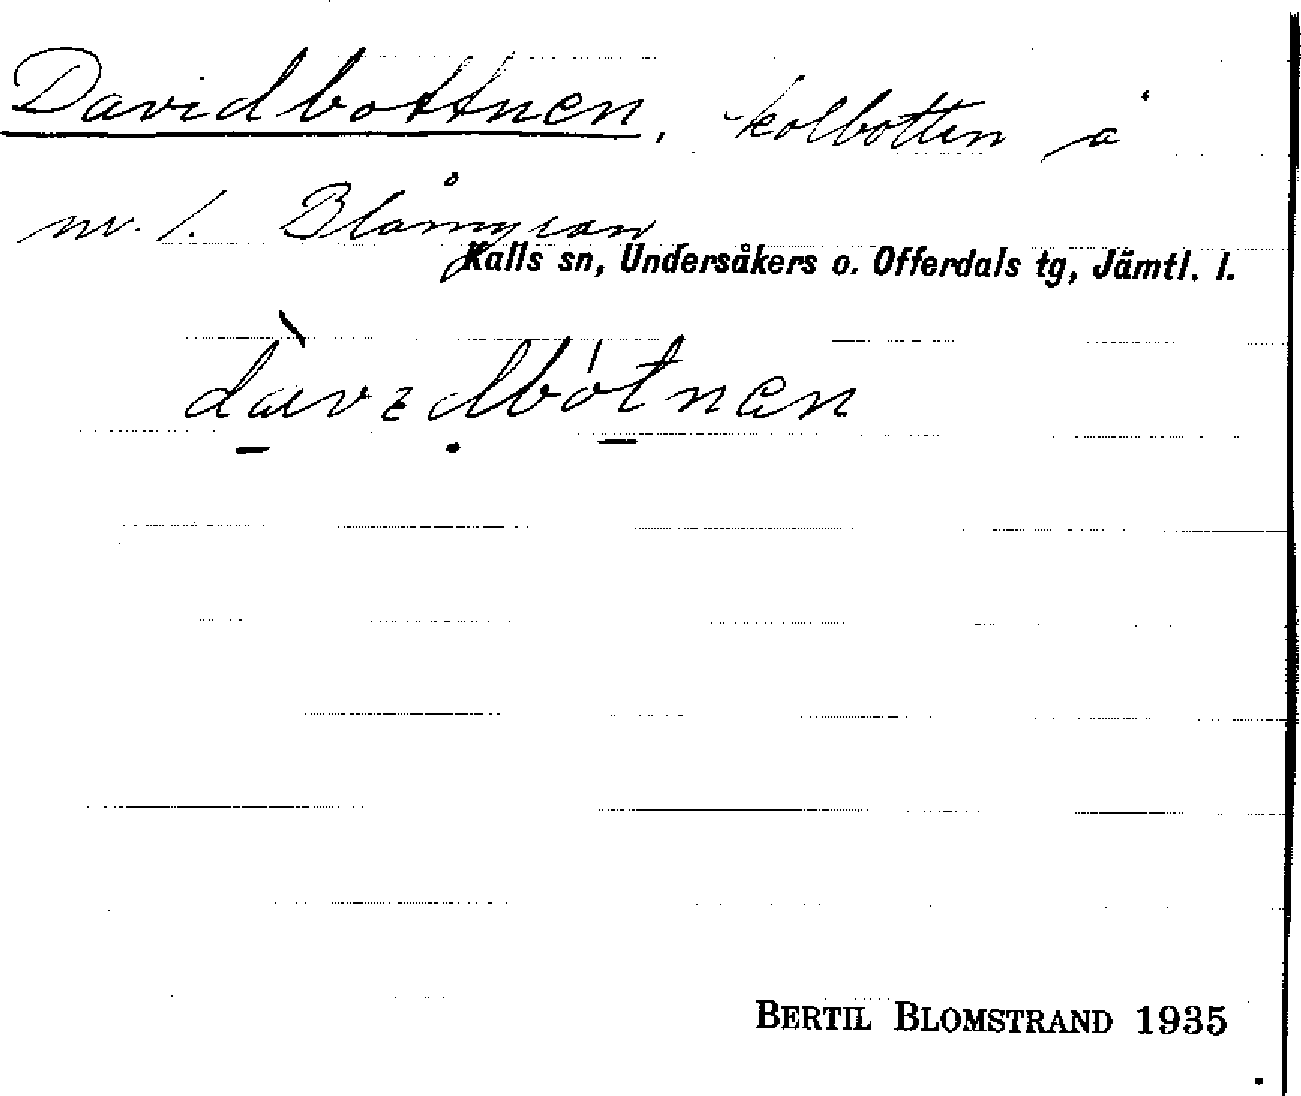 Davidbottnen, kolbotten å
nv. l. Blåmyran
Kalls sn, Undersåkers o. Offerdals tg, Jämtl. l.
BERTIL BLOMSTRAND 1935